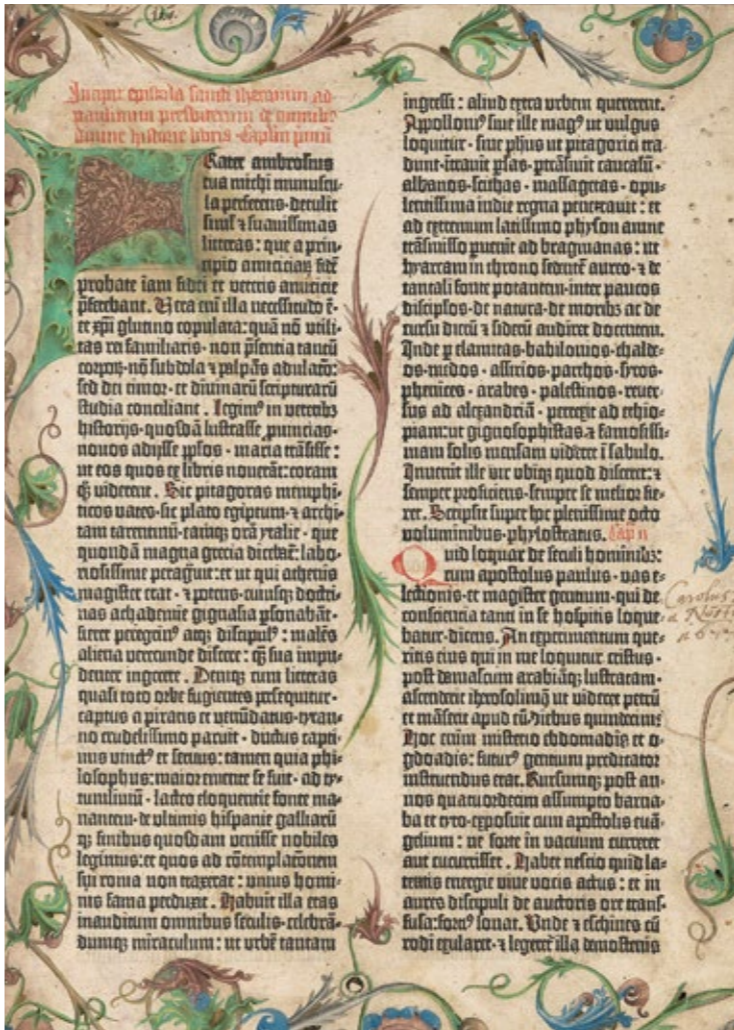 Incipit epistola sancti iheronimi ad
paulinum presbiterum de omnibus
diuine historie libris. Caplm pmū
Frater ambrosius
tua michi munuscu-
la perferens. detulit
simul ⁊ suauissimas
litteras: que a prin-
cipio amiciciaꝝ fidē
probate iam fidei et veteris amicicie
p̄ferebant. Vera eni̅ illa necessitudo ē.
et xp̄i glutino copulata: quā nō vtili-
tas rei familiaris. non p̄sentia tantū
corpoꝝ. nō subdola ⁊ palpās adulaco̅:
sed dei timor. et diuinarū scripturarū
studia conciliant. Legimꝰ in veteribꝫ
historijs. quosdā lustrasse ꝓuincias.
nouos adijsse pp̄los. maria trāsisse:
ut eos quos ex libris nouerāt: coram
qꝫ viderent. Sic pitagoras memphi-
ticos vates. sic plato egiptum. ⁊ archi-
tam tarentinū. eamqꝫ orā ytalie. que
quondā magna grecia dicebat̉: labo-
riosissime peragiuit: et ut qui athenis
magister erat. ⁊ potens. cuiusqꝫ doctri-
nas achademie gignasia ꝑsonabāt.
fieret peregrinꝰ atqꝫ discipulꝰ: malēs
aliena verecunde discere: qꝫ sua impu-
denter ingerere. Deniqꝫ cum litteras
quasi toto orbe fugientes ꝑsequitur.
captus a piratis et venūdatus. tyran-
no crudelissimo paruit. ductus capti-
uus vinctꝰ et seruus: tamen quia phi-
losophus: maior emente se fuit. ad ty-
tumliuiū. lacteo eloquentie fonte ma-
nantem. de vltimis hispanie galliarū
qꝫ finibus quosdam venisse nobiles
legimus: et quos ad cōtemplacōnem
sui roma non traxerat: vnius homi-
nis fama perduxit. Habuit illa etas
inauditum omnibus seculis. celebrā-
dumqꝫ miraculum: ut vrbē tantam
ingressi: aliud extra vrbem quererent.
Appollonꝰ siue ille magꝰ ut vulgus
loquitur. siue ph̄us ut pitagorici tra-
dunt. ītrauit ꝑsas. ꝑtrāsiuit caucasū.
albanos. scithas. massagetas. opu-
lentissima indie regna penetrauit: et
ad extremum latissimo physon amne
trāsmisso puenit ad bragmanas: ut
hyarcam in throno sedentē aureo. ⁊ de
tantali fonte potantem. inter paucos
discip̄los. de natura. de moribꝫ ac de
cursu dierū ⁊ siderū audiret docentem.
Inde ꝑ elamitas. babilonios. chalde-
os. medos. assirios. parthos. syros.
phenices. arabes. palestinos. reuer-
sus ad alexandriā. perrexit ad ethio-
piam: ut gignosophistas ⁊ famosissi-
mam solis mensam videret ī sabulo.
Inuenit ille vir vbiqꝫ quod disceret: ⁊
semper proficiens. semper se melior fie-
ret. Scripsit super hoc plenissime octo
voluminibus. phylostratus. Cap̄ II
Quid loquar de seculi hominibꝫ:
cum apostolus paulus. vas e-
lectionis. et magister gentium. qui de
consciencia tanti in se hospitis loque-
batur. dicens. An experimentum que-
ritis eius qui in me loquitur cristus.
post damascum arabiāqꝫ lustratam.
ascenderit iherosolimā ut videret petrū
et māserit apud eū. diebus quindecim?
Hoc enim misterio ebdomadis et o-
gdoadis: futurꝰ gentium predicator
instruendus erat. Rursumqꝫ post an-
nos quatuordecim assumpto barna-
ba et tyto. exposuit cum apostolis euā-
gelium: ne forte in vacuum curreret
aut cucurrisset. Habet nescio quid la-
tentis energie viue vocis actus: et in
aures discipuli de auctoris ore trans-
fusa: fortiꝰ sonat. Vnde ⁊ eschines cū
rodi exularet. ⁊ legeret̉ illa demostenis
Carolus